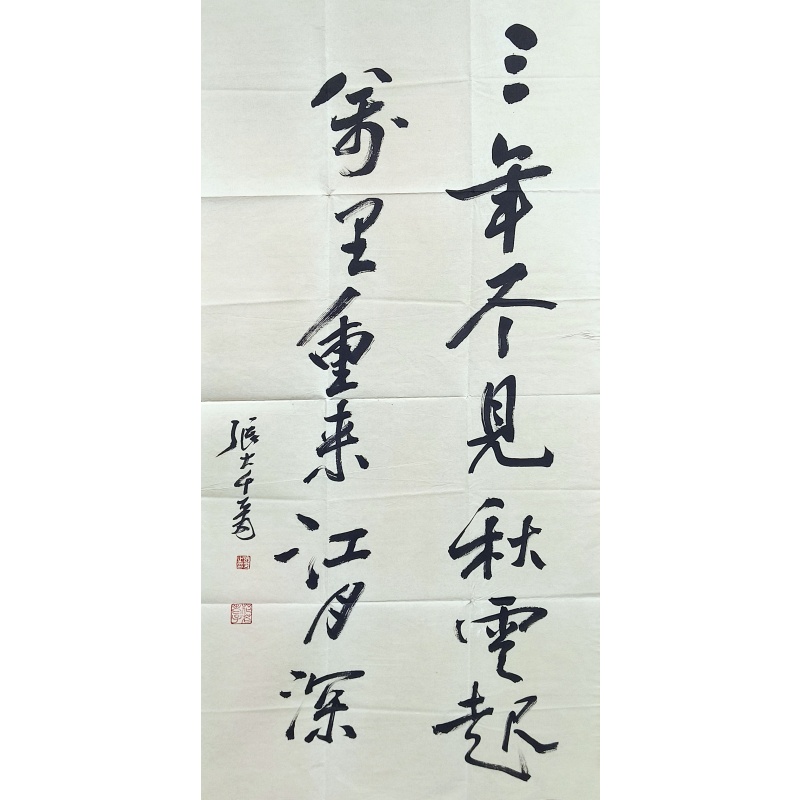 三年不見秋雲起
萬里重来江月深
張大千爰